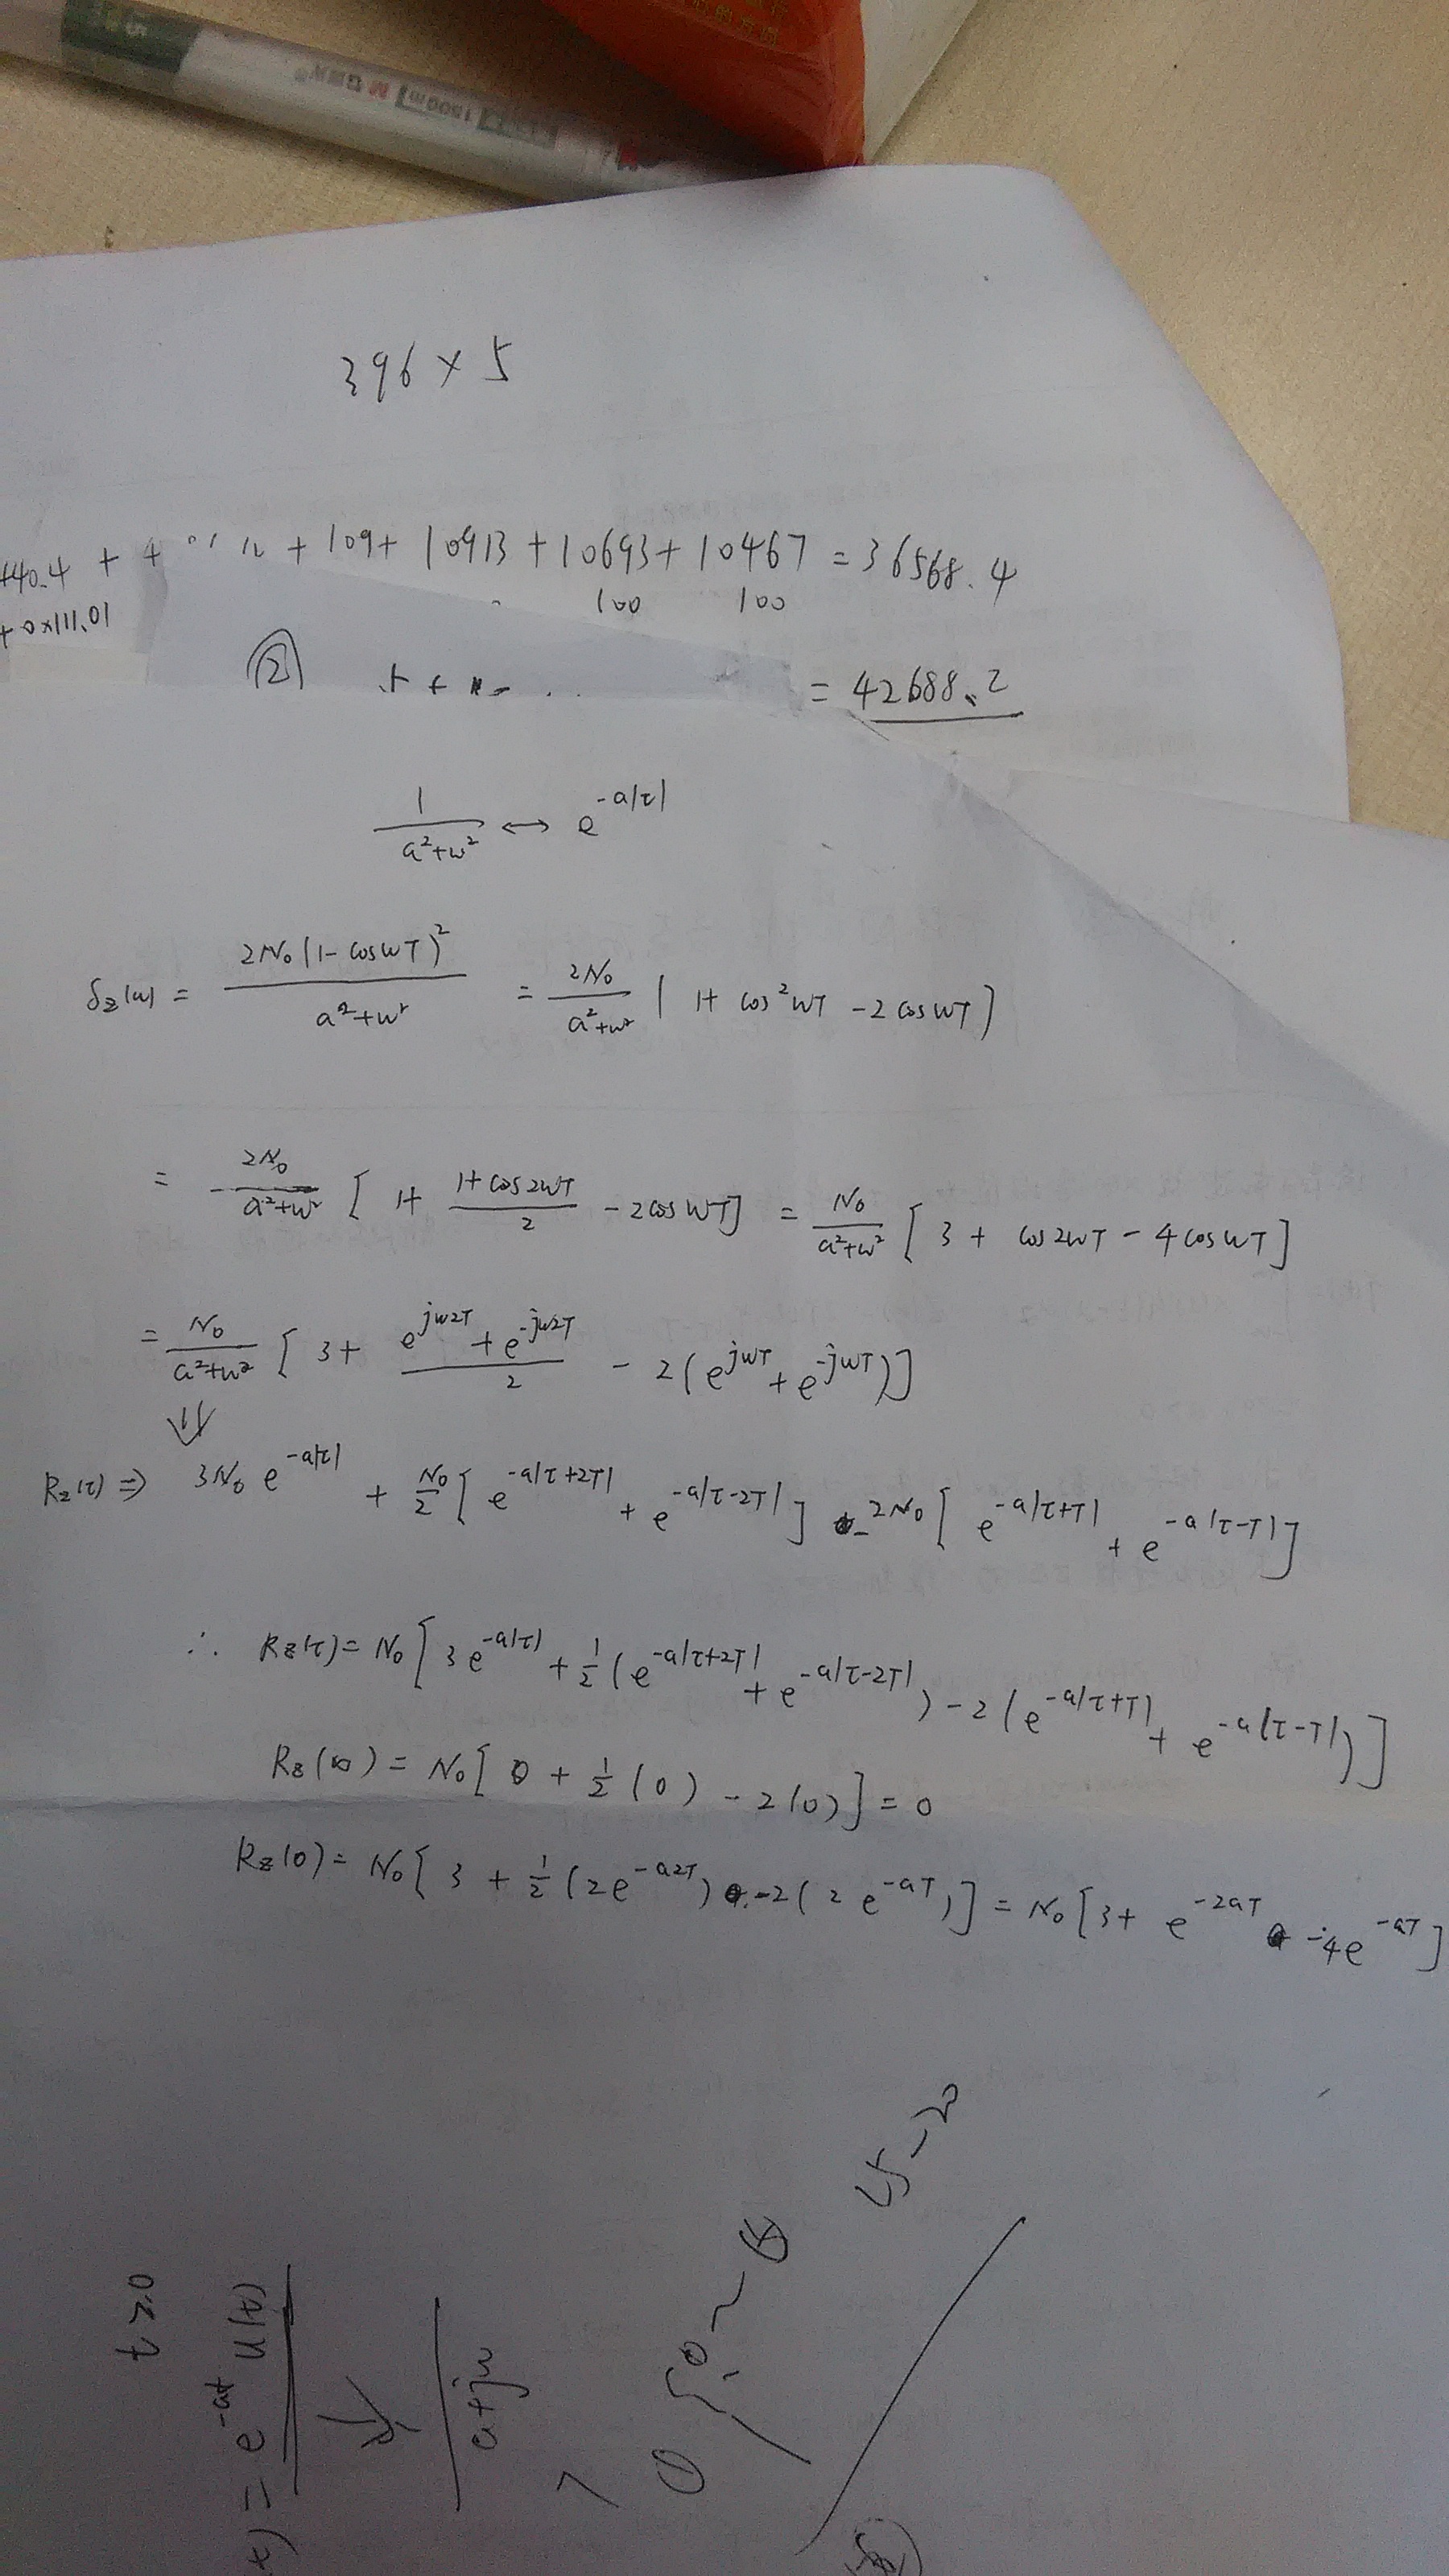 的方向
1500m M
396 × 5
+40.4 + 4 + 109 + 10913 + 10693 + 10467 = 36568.4
+ 0×111.01 100 100
② = 42688.2
1/(a²+w²) ↔ e^(-a|τ|)
S_z(w) = 2N₀(1-coswT)²/(a²+w²) = 2N₀/(a²+w²) (1+cos²wT-2coswT)
= 2N₀/(a²+w²) [1+(1+cos2wT)/2-2coswT] = N₀/(a²+w²) [3+cos2wT-4coswT]
= N₀/(a²+w²) [3+(e^(jw2T)+e^(-jw2T))/2-2(e^(jwT)+e^(-jwT))]
⇓
R_z(τ) ⇒ 3N₀e^(-a|τ|) + N₀/2 [e^(-a|τ+2T|)+e^(-a|τ-2T|)] - 2N₀[e^(-a|τ+T|)+e^(-a|τ-T|)]
∴ R_z(τ) = N₀[3e^(-a|τ|)+1/2(e^(-a|τ+2T|)+e^(-a|τ-2T|))-2(e^(-a|τ+T|)+e^(-a|τ-T|))]
R_z(∞) = N₀[0+1/2(0)-2(0)] = 0
R_z(0) = N₀[3+1/2(2e^(-a2T))-2(2e^(-aT))] = N₀[3+e^(-2aT)-4e^(-aT)]
t≥0
t) = e^(-at) u(t)
↓
a+jw